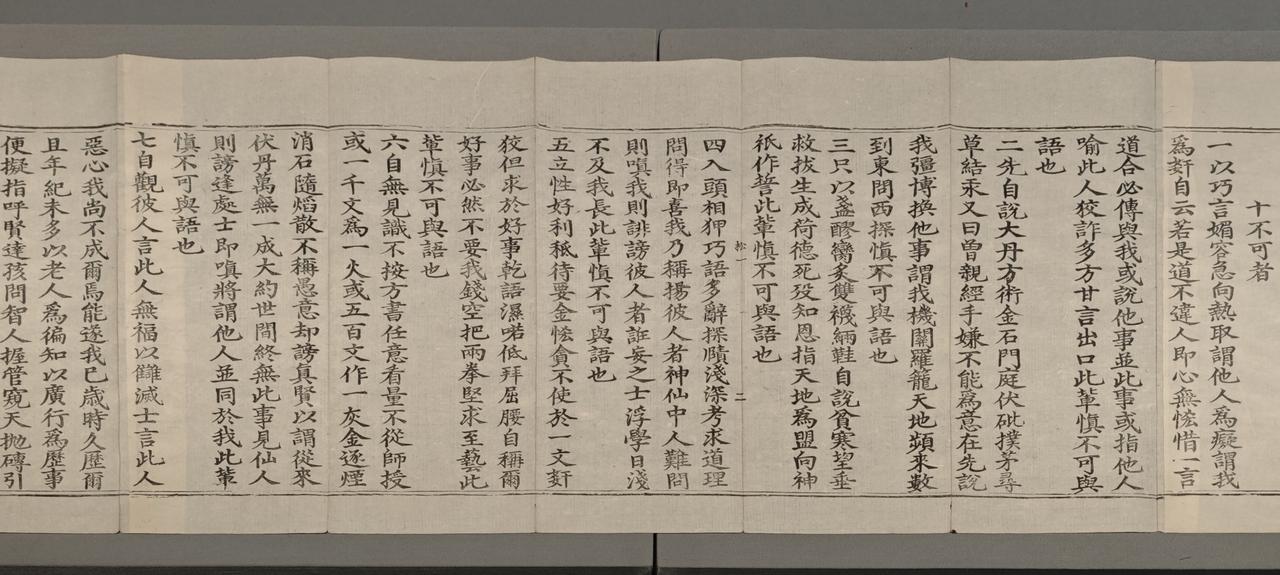 十不可者
一以巧言媚容急向熱取謂他人為癡謂我
為姧自云若是道不違人即心無恡惜一言
道合必傳與我或說他事並此事或指他人
喻此人狡詐多方甘言出口此輩慎不可與
語也
二先自說大丹方術金石門庭伏砒撲茅尋
草結汞又曰曾親經手嫌不能為意在先說
我彊博換他事謂我機關羅籠天地頻來數
到東問西探慎不可與語也
三只以盞醪臠炙雙襪緉鞋自說貧寒望垂
救拔生成荷德死歿知恩指天地為盟向神
祇作誓此輩慎不可與語也
四入頭相狎巧語多辭探賾淺深考求道理
問得即喜我乃稱揚彼人者神仙中人難問
則嗔我則誹謗彼人者誑妄之士浮學日淺
不及我長此輩慎不可與語也
五立性好利秪待要金恡貪不使於一文姧
狡但求於好事乾語濕喏低拜屈腰自稱爾
好事必然不要我錢空把兩拳堅求至藝此
輩慎不可與語也
六自無見識不按方書任意看量不從師授
或一千文為一火或五百文作一灰金逐煙
消石隨熖散不稱愚意却謗真賢以謂從來
伏丹萬無一成大約世間終無此事見仙人
則謗達處士即嗔將謂他人並同於我此輩
慎不可與語也
七自觀彼人言此人無福以讎滅士言此人
惡心我尚不成爾焉能遂我巳歲時久歷爾
且年紀未多以老人為徧知以廣行為歷事
便擬指呼賢達孩問智人握管窺天抛磚引
二